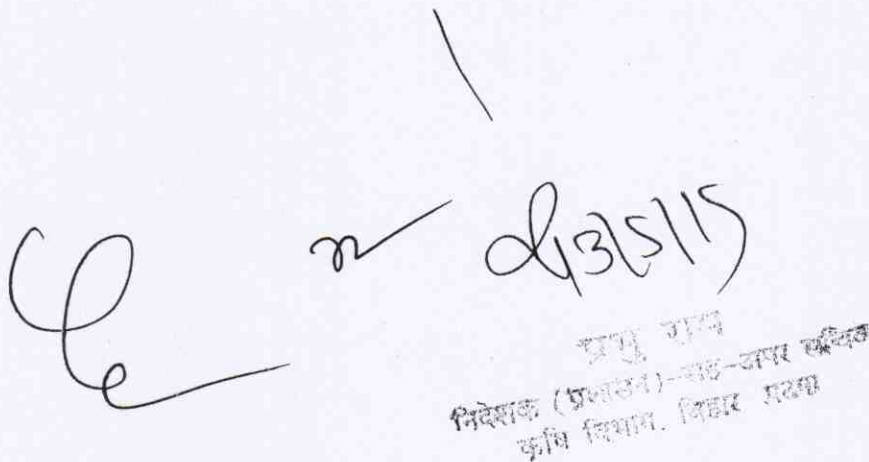 13/5/15
प्रभु राम
निदेशक (प्रशासन)-सह-अपर सचिव
कृषि विभाग, बिहार पटना